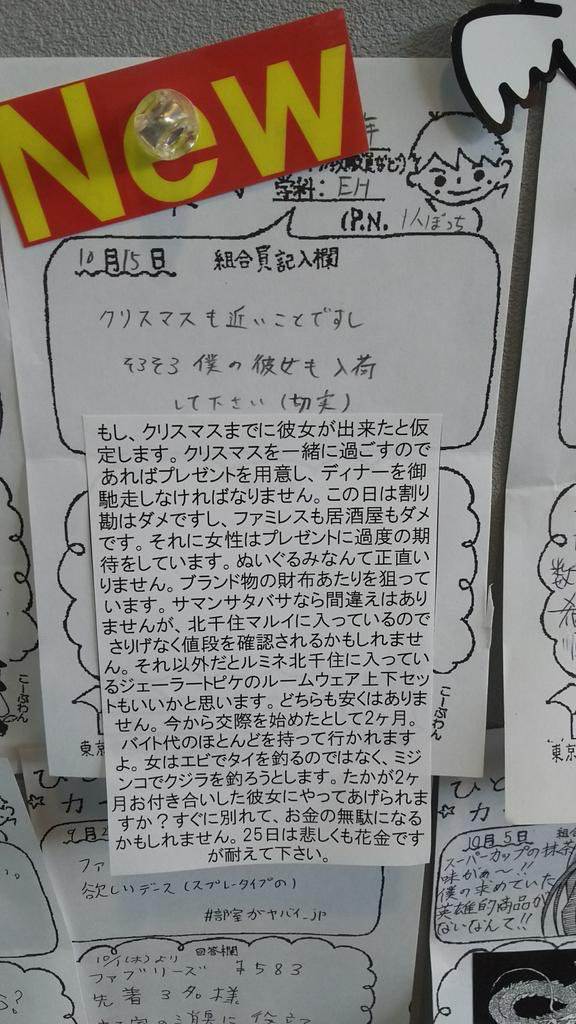 New
学科: EH
(P.N. 1人ぼっち)
10月15日 組合員記入欄
クリスマスも近いことですし
そろそろ僕の彼女も入荷
して下さい(切実)
もし、クリスマスまでに彼女が出来たと仮
定します。クリスマスを一緒に過ごすので
あればプレゼントを用意し、ディナーを御
馳走しなければなりません。この日は割り
勘はダメですし、ファミレスも居酒屋もダメ
です。それに女性はプレゼントに過度の期
待をしています。ぬいぐるみなんて正直い
りません。ブランド物の財布あたりを狙って
います。サマンサタバサなら間違えはあり
ませんが、北千住マルイに入っているので
さりげなく値段を確認されるかもしれませ
ん。それ以外だとルミネ北千住に入ってい
るジェーラートピケのルームウェア上下セッ
トもいいかと思います。どちらも安くはありま
せん。今から交際を始めたとして2ヶ月。
バイト代のほとんどを持って行かれます
よ。女はエビでタイを釣るのではなく、ミジ
ンコでクジラを釣ろうとします。たかが2ヶ
月お付き合いした彼女にやってあげられま
すか？すぐに別れて、お金の無駄になる
かもしれません。25日は悲しくも花金です
が耐えて下さい。
こーぷわん
こーぷわん
東京
東京
ひと
カー
欲しいデース(スプレータイプの)
#部室がヤバイ_jp
10/1(水)より 回答欄
ファブリーズ ¥583
先着3名様
10月5日
スーパーカップの抹茶
味がぁ〜!!
僕の求めていた
英雄的商品が
ないなんて!!